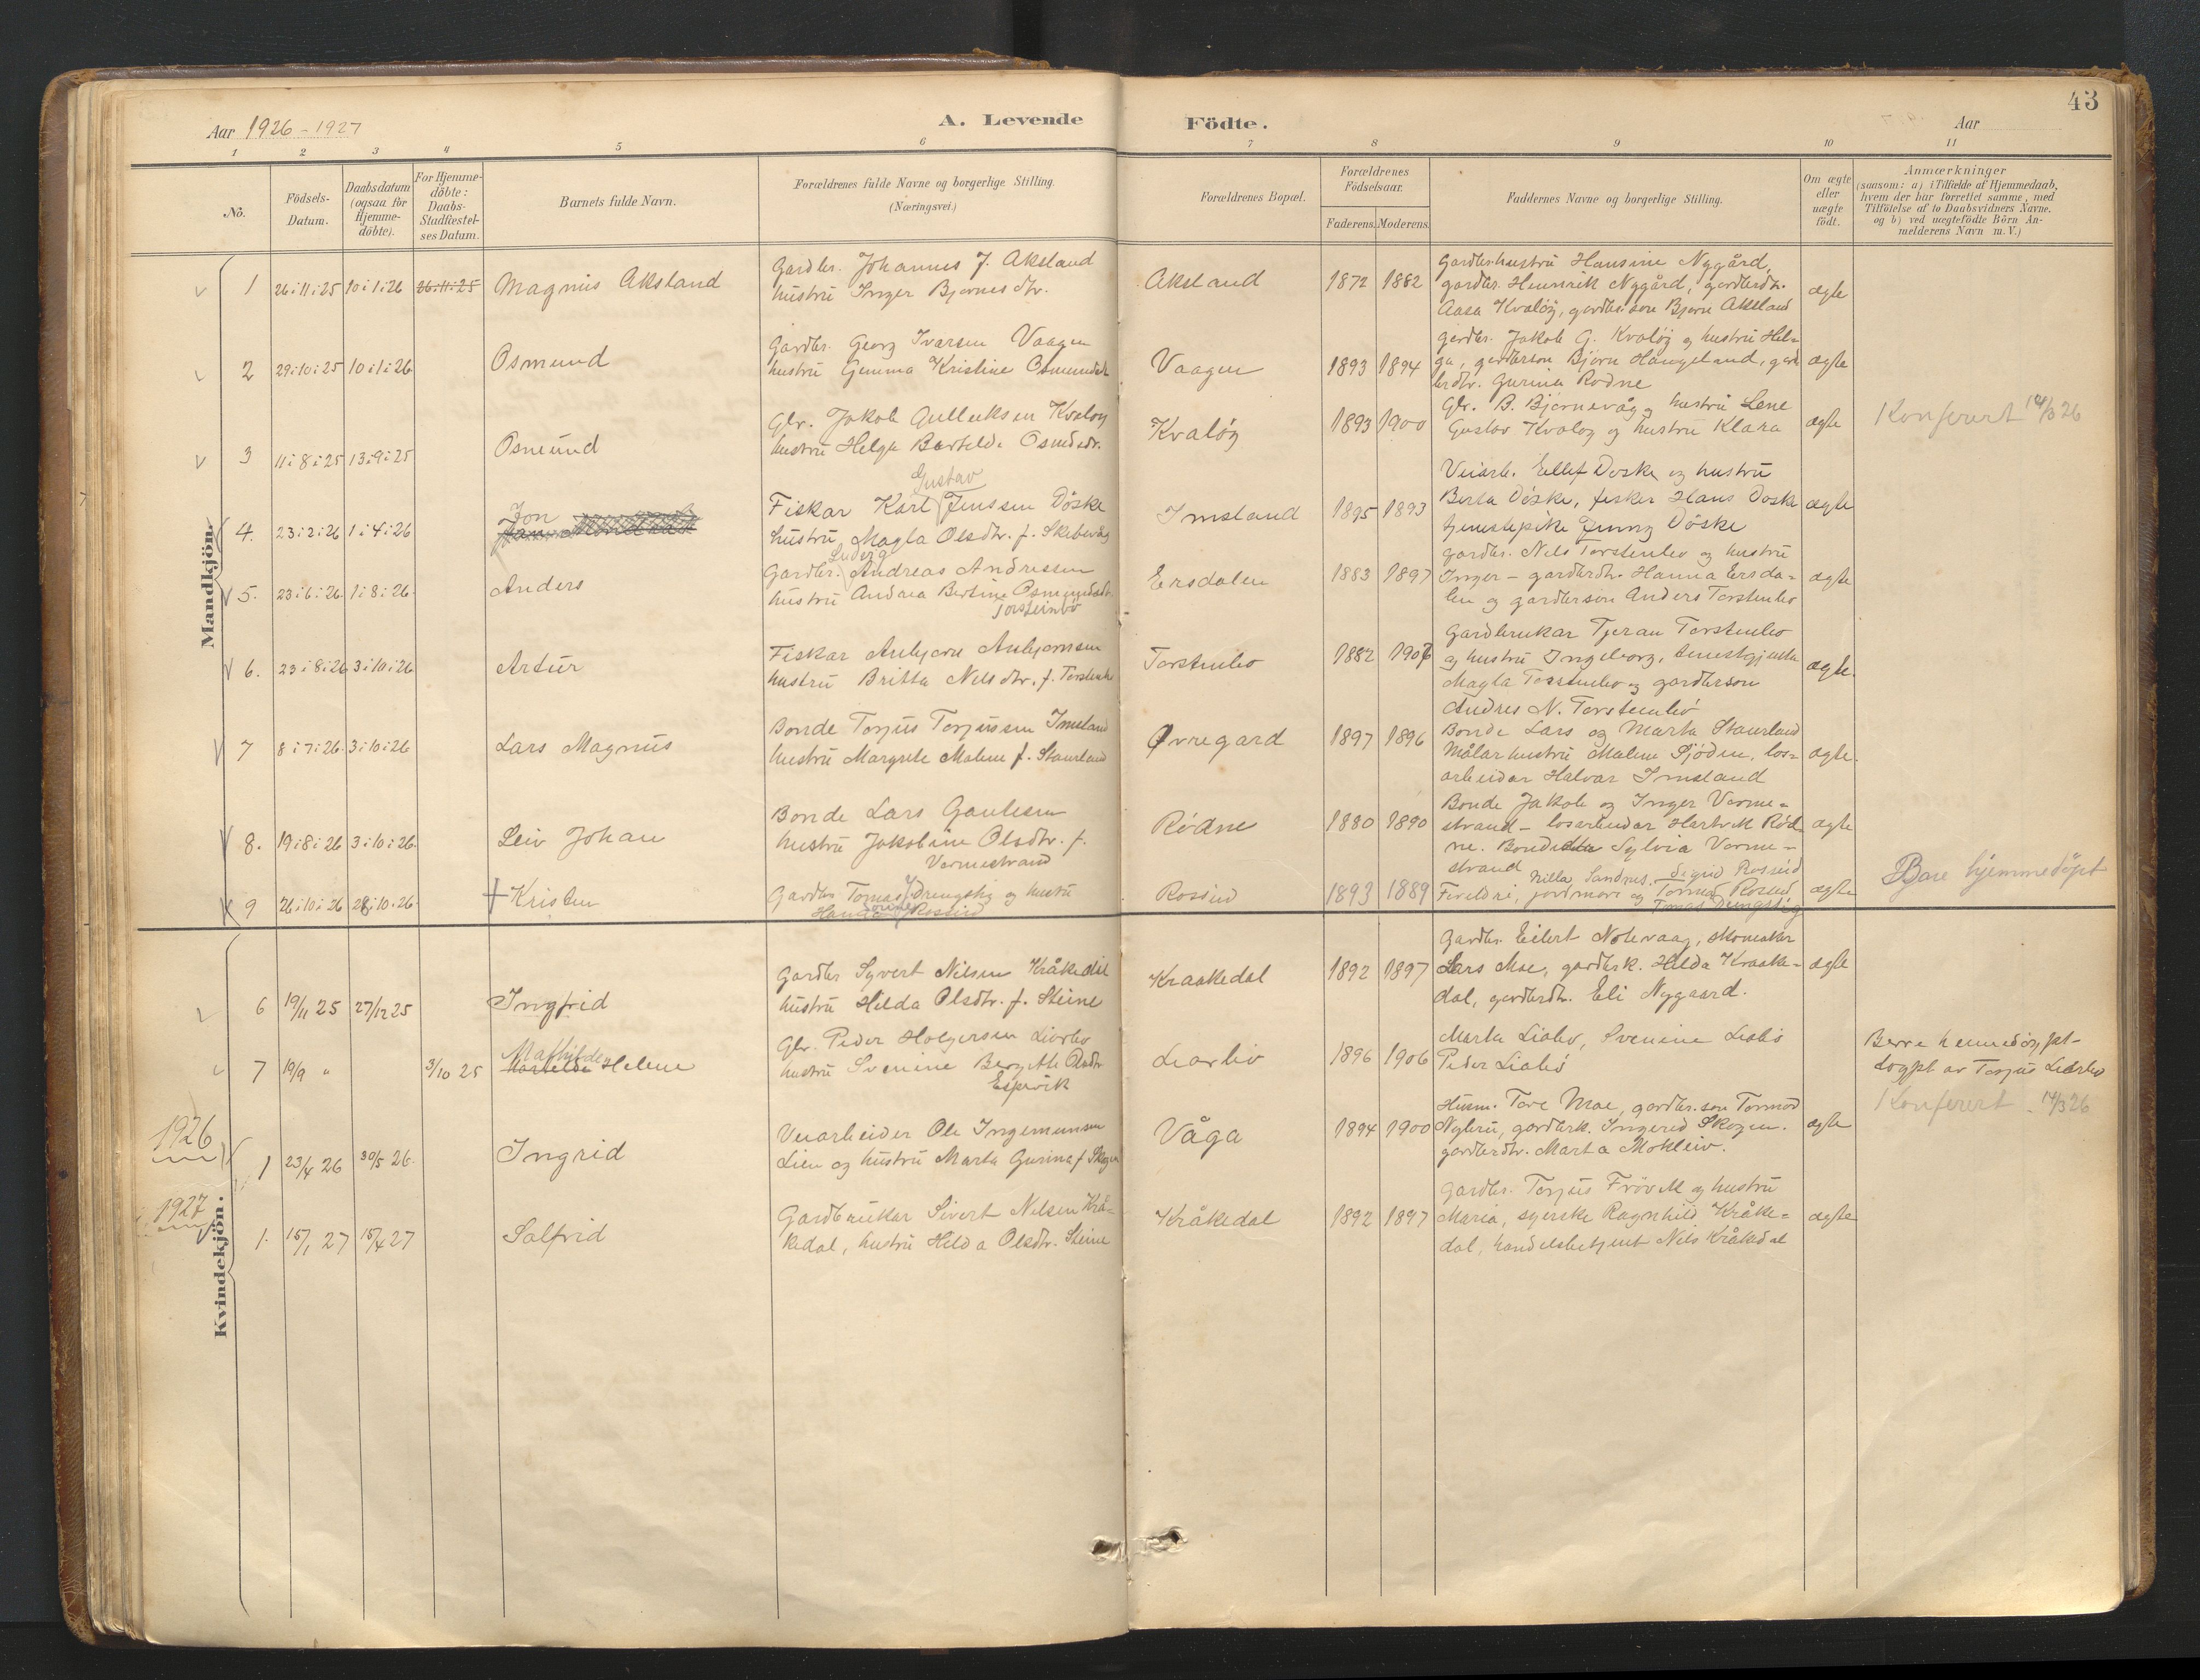 43
Aar 1926-1927
A. Levende
Födte.
Aar
1 2 3 4 5 6 7 8 9 10 11
No.
Födsels-
Datum.
Daabsdatum
(ogsaa for
Hjemme-
döbte).
For Hjemme-
döbte:
Daabs-
Stadfæstel-
ses Datum.
Barnets fulde Navn.
Forældrenes fulde Navne og borgerlige Stilling.
(Næringsvei.)
Forældrenes Bopæl.
Forældrenes
Födselsaar.
Faderens. Moderens.
Faddernes Navne og borgerlige Stilling.
Om ægte
eller
uægte
födt.
Anmærkninger
(saasom: a) i Tilfælde af Hjemmedaab,
hvem der har forrettet samme, med
Tilföielse af to Daabsvidners Navne,
og b) ved uægtefödte Börn An-
melderens Navn m. V.)
Mandkjön.
1 26:11:25 10:1:26 26:11:25 Magnus Aksland
Gardbr. Johannes J. Aksland
hustru Inger Bjørnesdtr.
Aksland 1872 1882
Gardbr.hustru Hansine Nygård,
gardbr. Henrik Nygård, gardbrdtr.
Aasa Kvaløy, gardbr.son Bjørn Aksland
ægte
2 29:10:25 10:1:26 Osmund
Gardbr. Georg Iversen Vaagen
hustru Gemma Kristine Osmundsdtr
Vaagen 1893 1894
gardbr. Jakob G. Kvaløy og hustru Hel-
ga, gardbrson Bjørn Haugeland, gard
brdtr. Gurina Rødne
ægte
3 11:8:25 13:9:25 Osmund
Gbr. Jakob Gulleiksen Kvaløy
hustru Helga Bertelda Osmdsdtr.
Kvaløy 1893 1900
Gbr. B. Bjørnevåg, hustru Lene
Gustav Kvaløy og hustru Klara
ægte
Konferert 14/3 26
4. 23:2:26 1:4:26 Jon
Gustav
Fiskar Karl Jenssen Döske
hustru Magla Olsdtr. f. Skeievåg
Imsland 1895 1893
Veiarb. Eellef Døske og hustru
Berta Döske, fisker Hans Døske
tjenestepike Jenny Döske
ægte
5. 23:6:26. 1:8:26. Anders
Ludvig
Gardbr. Andreas Andressen
hustru Andrea Bertine Osmundsdt.
Torsteinbö
Ersdalen 1883 1897
gardbr. Nils Torsteinbø og hustru
Inger – gardbrdtr. Hanna Ersda-
len og gardbrson Anders Torsteinbø
ægte
6. 23:8:26 3:10:26 Artur
Fiskar Anbjørn Anbjørnsen
hustru Britta Nelsdtr. f. Torsteinbø
Torsteinbø 1882
Gardbrukar Tjeran Torsteinbø
og hustru Ingeborg,
Magla Torsteinbø og gardbrson
Andres N. Torsteinbö
ægte.
7 8:7:26. 3:10:26 Lars Magnus
Bonde Torjus Torjussen Imsland
hustru Margrete Malene f. Staurland
Øvregard 1897 1896
Bonde Lars og Marta Staurland
Målar hustru Malene Sjöden, los-
arbeidar Halvar Imsland
ægte.
8. 19:8:26 3:10:26. Leiv Johan
Bonde Lars Gautesen
hustru Jakobine Olsdtr. f.
Vormestrand
Rödne 1880 1890
Bonde Jakob og Inger Vorme-
strand – losarbeidar Hartvik Röd-
ne. Bonde Sylvia Vorme-
strand
ægte
9 26:10:26 28:10.26. † Kristen
Gardbr. Tomas J. Drengstig og hustru
Hanna Rossiid
Rossiid 1893 1889
Nilla Sandnes. Sigrid Rossiid
Foreldre, jordmora og Tormod Rossiid
Tomas Drengstig
ægte
Bare hjemmedöpt
Kvindekjön.
6 19/11 25 27/12 25 Ingfrid
Gardbr Syvert Nilsen Kråkedal
hustru Hilda Olsdtr. f. Steine
Kraakedal 1892 1897
Gardbr. Eilert Notevaag, skomaker
Lars Moe, gardbrk. Hilda Kraake-
dal, gardbrdtr. Eli Nygaard.
ægte
7 19/9 " 3/10 25 Mathilde Helene
Gbr. Peder Holgersen Liarbø
hustru Svenine Bergitte Olsdtr
Espevik
Liarbø 1896 1906
Marta Liabø, Svenine Liabö
Peder Liabö
Berre heimedøypt –
døypt av Torjus Liarbø
Konferert 14/3 26
1926
1 23/4 26 30/5 26. Ingrid
Veiarbeider Ole Ingemunsen
Lien og hustru Marta Gurina f. Skogen
Våga 1894 1900
Husm. Tore Moe, gardbr.son Tormod
Nybru, gardbrk. Ingerid Skogen.
gardbrdtr. Marta Mokleiv.
ægte
1927
1. 15/1 27 15/4 27 Salfrid
Gardbrukar Sivert Nilsen Krå-
kedal, hustru Hilda Olsdtr. Steine
Kråkedal 1892 1897
Gardbr. Torjus Frövik og hustru
Maria, syerske Ragnhild Kråke-
dal, handelsbetjent Nils Kråkedal
ægte